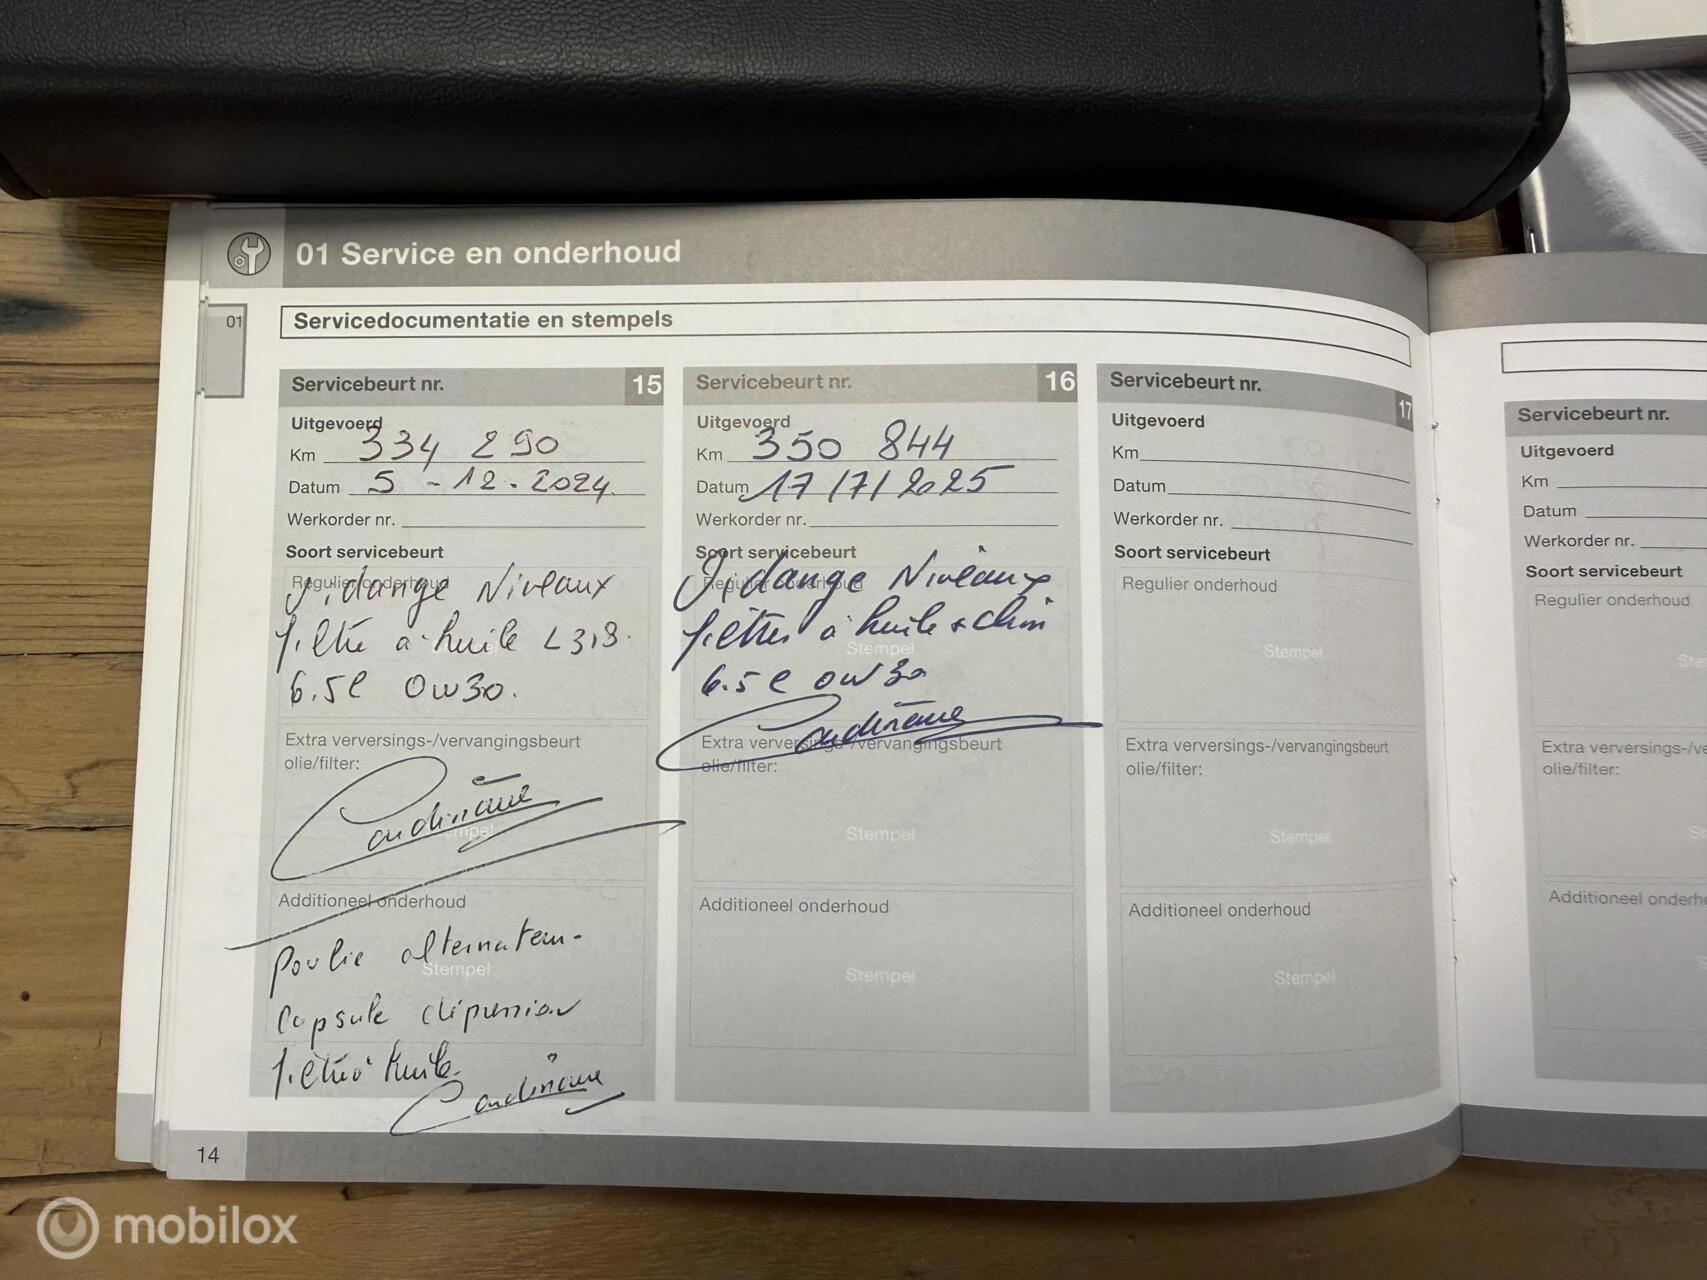 01 Service en onderhoud
01
Servicedocumentatie en stempels
Servicebeurt nr. 15
Uitgevoerd
Km 334 290
Datum 5 - 12 . 2024
Werkorder nr.
Soort servicebeurt
Regulier onderhoud
Vidange Niveaux
filtre à huile L313.
6.5l 0w30.
Extra verversings-/vervangingsbeurt
olie/filter:
Stempel
Additioneel onderhoud
Poulie alternateur
Stempel
Capsule dépression
filtre à huile
Servicebeurt nr. 16
Uitgevoerd
Km 350 844
Datum 17/7/2025
Werkorder nr.
Soort servicebeurt
Regulier onderhoud
Vidange Niveaux
filtres à huile +
Stempel
6.5l 0w30
Extra verversings-/vervangingsbeurt
olie/filter:
Stempel
Additioneel onderhoud
Stempel
Servicebeurt nr. 17
Uitgevoerd
Km
Datum
Werkorder nr.
Soort servicebeurt
Regulier onderhoud
Stempel
Extra verversings-/vervangingsbeurt
olie/filter:
Stempel
Additioneel onderhoud
Stempel
Servicebeurt nr.
Uitgevoerd
Km
Datum
Werkorder nr.
Soort servicebeurt
Regulier onderhoud
Extra verversings-/ve
olie/filter:
Additioneel onderh
14
mobilox